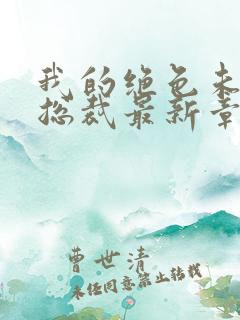 我的绝色未
总裁最新章
曹世清
未经同意禁止转载